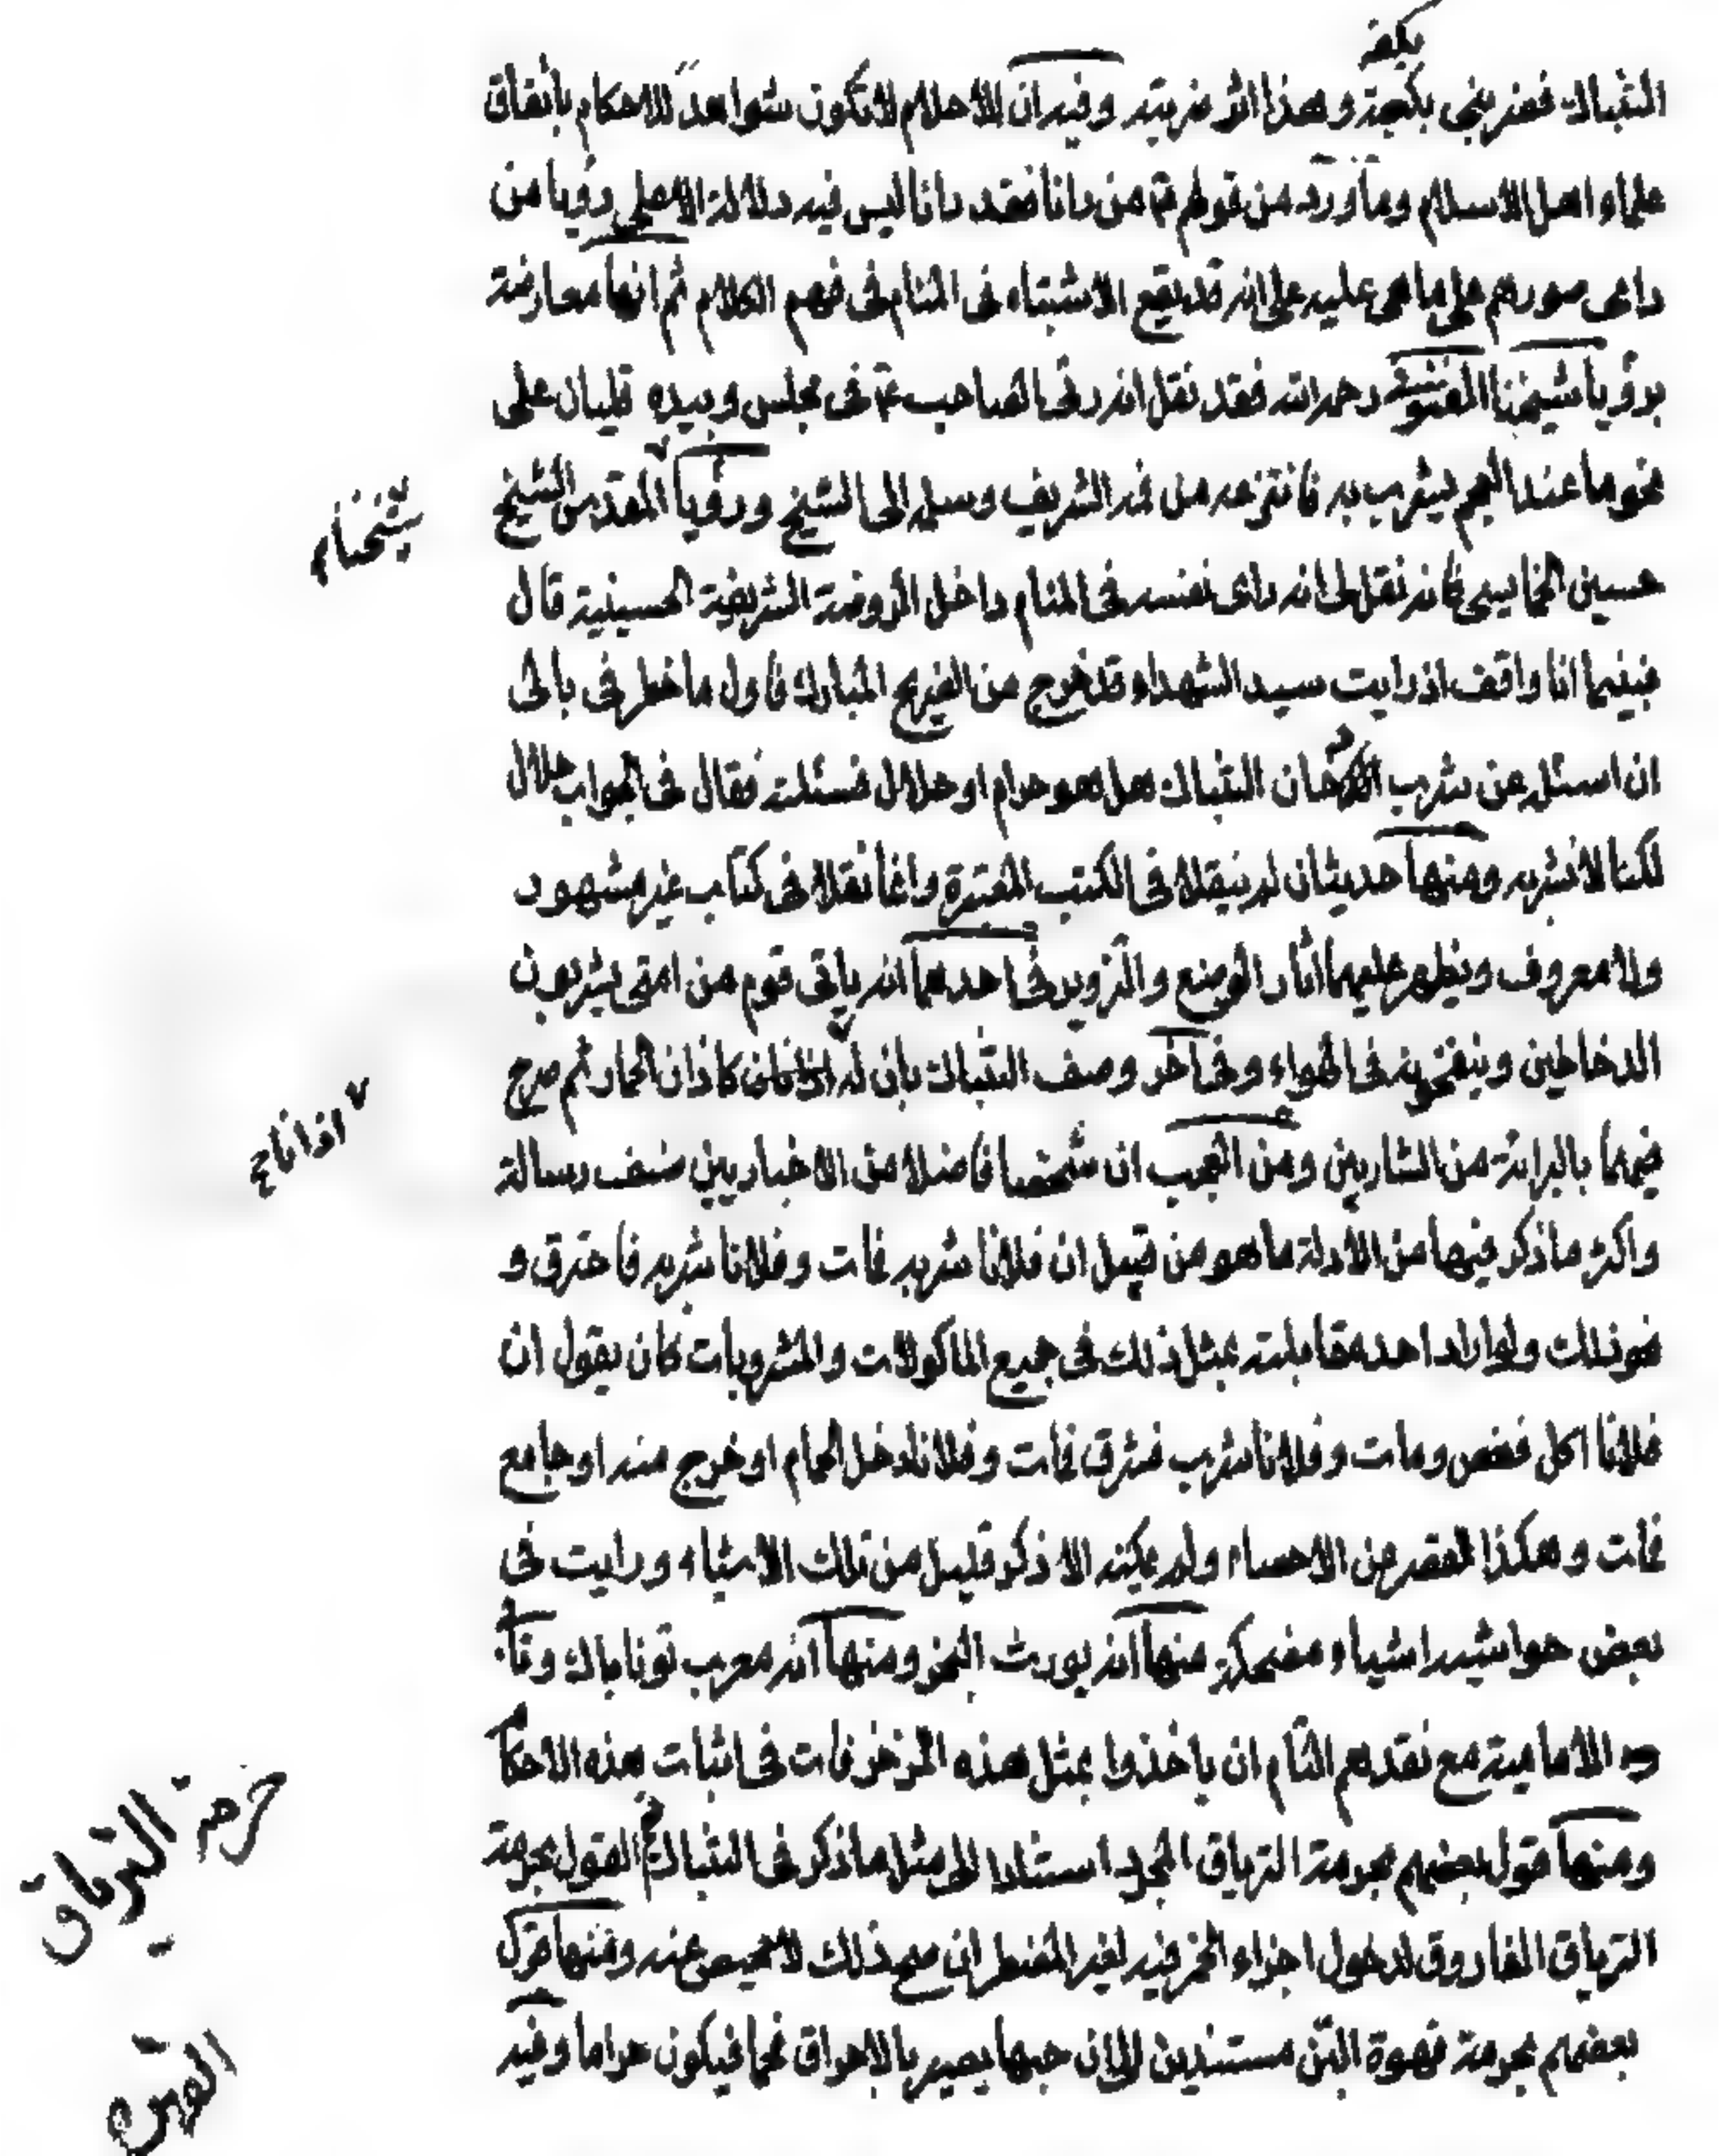 بكفه
التنباك فضربنى بكفه وهذا اثر ضربته وفيه ان الاحلام لا تكون شواهد للاحكام باتفاق
علماء اهل الاسلام وما ورد من قولهم ع من رانا فقد رانا ليس فيه دلالة الا على رؤيا من
راى صورهم على ما هى عليه على انه قد يقع الاشتباه فى المنام فى فهم الكلام ثم انها معارضة
برؤيا شيخنا رحمه الله فقد نقل انه رئى الصاحب ع فى مجلس وبيده قليان على
نحو ما عند العجم يشرب به فانتزعه من فمه الشريف وسلمه الى الشيخ ورؤيا المقدس الشيخ
شيخنا
حسين فانه نقل لى انه راى نفسه فى المنام داخل الروضة الشريفة الحسينية قال
فبينما انا واقف اذ رايت سيد الشهداء قد خرج من الضريح المبارك فاول ما خطر فى بالى
ان اسئله عن شرب التنباك هل هو حرام او حلال فسئلته فقال فى الجواب حلال
لكنا لا نشربه ومنها حديثان لم ينقلا فى الكتب المعتبرة وانما نقلا فى كتاب غير مشهور
ولا معروف ويظهر عليهما اثار الوضع والتزوير فى احدهما انه ياتى قوم من امتى يشربون
الدخاخين وينفخونه فى الهواء وفى اخر وصف التنباك بان له كاذان الحمار ثم صرح
اذانا
فيهما بالبرائة من الشاربين ومن العجب ان شخصا فاضلا من الاخباريين صنف رسالة
واكثر ما ذكر فيها من الادلة ما هو من قبيل ان فلانا شربه فمات وفلانا شربه فاحترق و
نحو ذلك ولو اراد احد مقابلته بمثل ذلك فى جميع الماكولات والمشروبات كان يقول ان
فلانا اكل فغص ومات وفلانا شرب فشرق فمات وفلانا دخل الحمام او خرج منه او جامع
فمات وهكذا لقصر عن الاحصاء ولم يمكنه الا ذكر قليل من تلك الاشياء ورايت فى
بعض حواشيه اشياء مضحكة منها انه يورث البخر ومنها انه معرب توناباك
الامامية مع نقدهم التام ان ياخذوا بمثل هذه المزخرفات فى اثبات هذه الاحكا
م
ومنها قول بعضهم بحرمة الترياق المجرد استنادا الى مثل ما ذكر فى التنباك نعم القول بحرمة
حرمة الترياق
الترياق الفاروق لدخول اجزاء الخمر فيه لغير المضطر الى ذلك لا محيص عنه ومنها قول
بعضهم بحرمة قهوة البن مستندين الى ان حبها يصير بالاحراق فحما فيكون حراما وفيه
القهوة